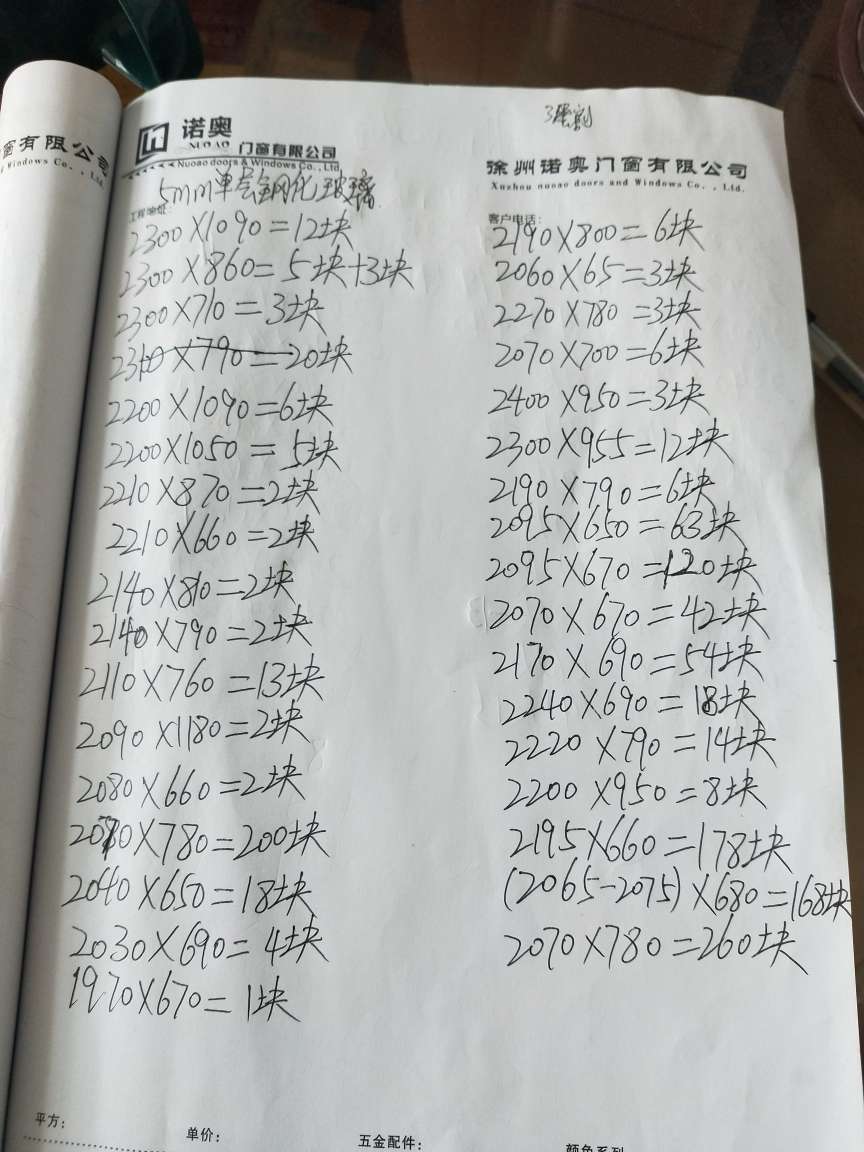 窗有限公司
Windows Co., Ltd.
诺奥
NUOAO 门窗有限公司
Nuoao doors & Windows Co., Ltd.
徐州诺奥门窗有限公司
Xuzhou nuoao doors and Windows Co., Ltd.
5mm单层钢化玻璃
工程地址:
2300×1090=12块
2300×860=5块+3块
2300×710=3块
2310×790=20块
2200×1090=6块
2200×1050=5块
2210×870=2块
2210×660=2块
2140×810=2块
2140×790=2块
2110×760=13块
2090×1180=2块
2080×660=2块
2070×780=200块
2040×650=18块
2030×690=4块
1970×670=1块
客户电话:
2190×800=6块
2060×65=3块
2270×780=3块
2070×700=6块
2400×950=3块
2300×955=12块
2190×790=6块
2095×650=63块
2095×670=120块
2070×670=42块
2170×690=54块
2240×690=18块
2220×790=14块
2200×950=8块
2195×660=178块
(2065-2075)×680=168块
2070×780=260块
平方:
单价:
五金配件:
颜色系列